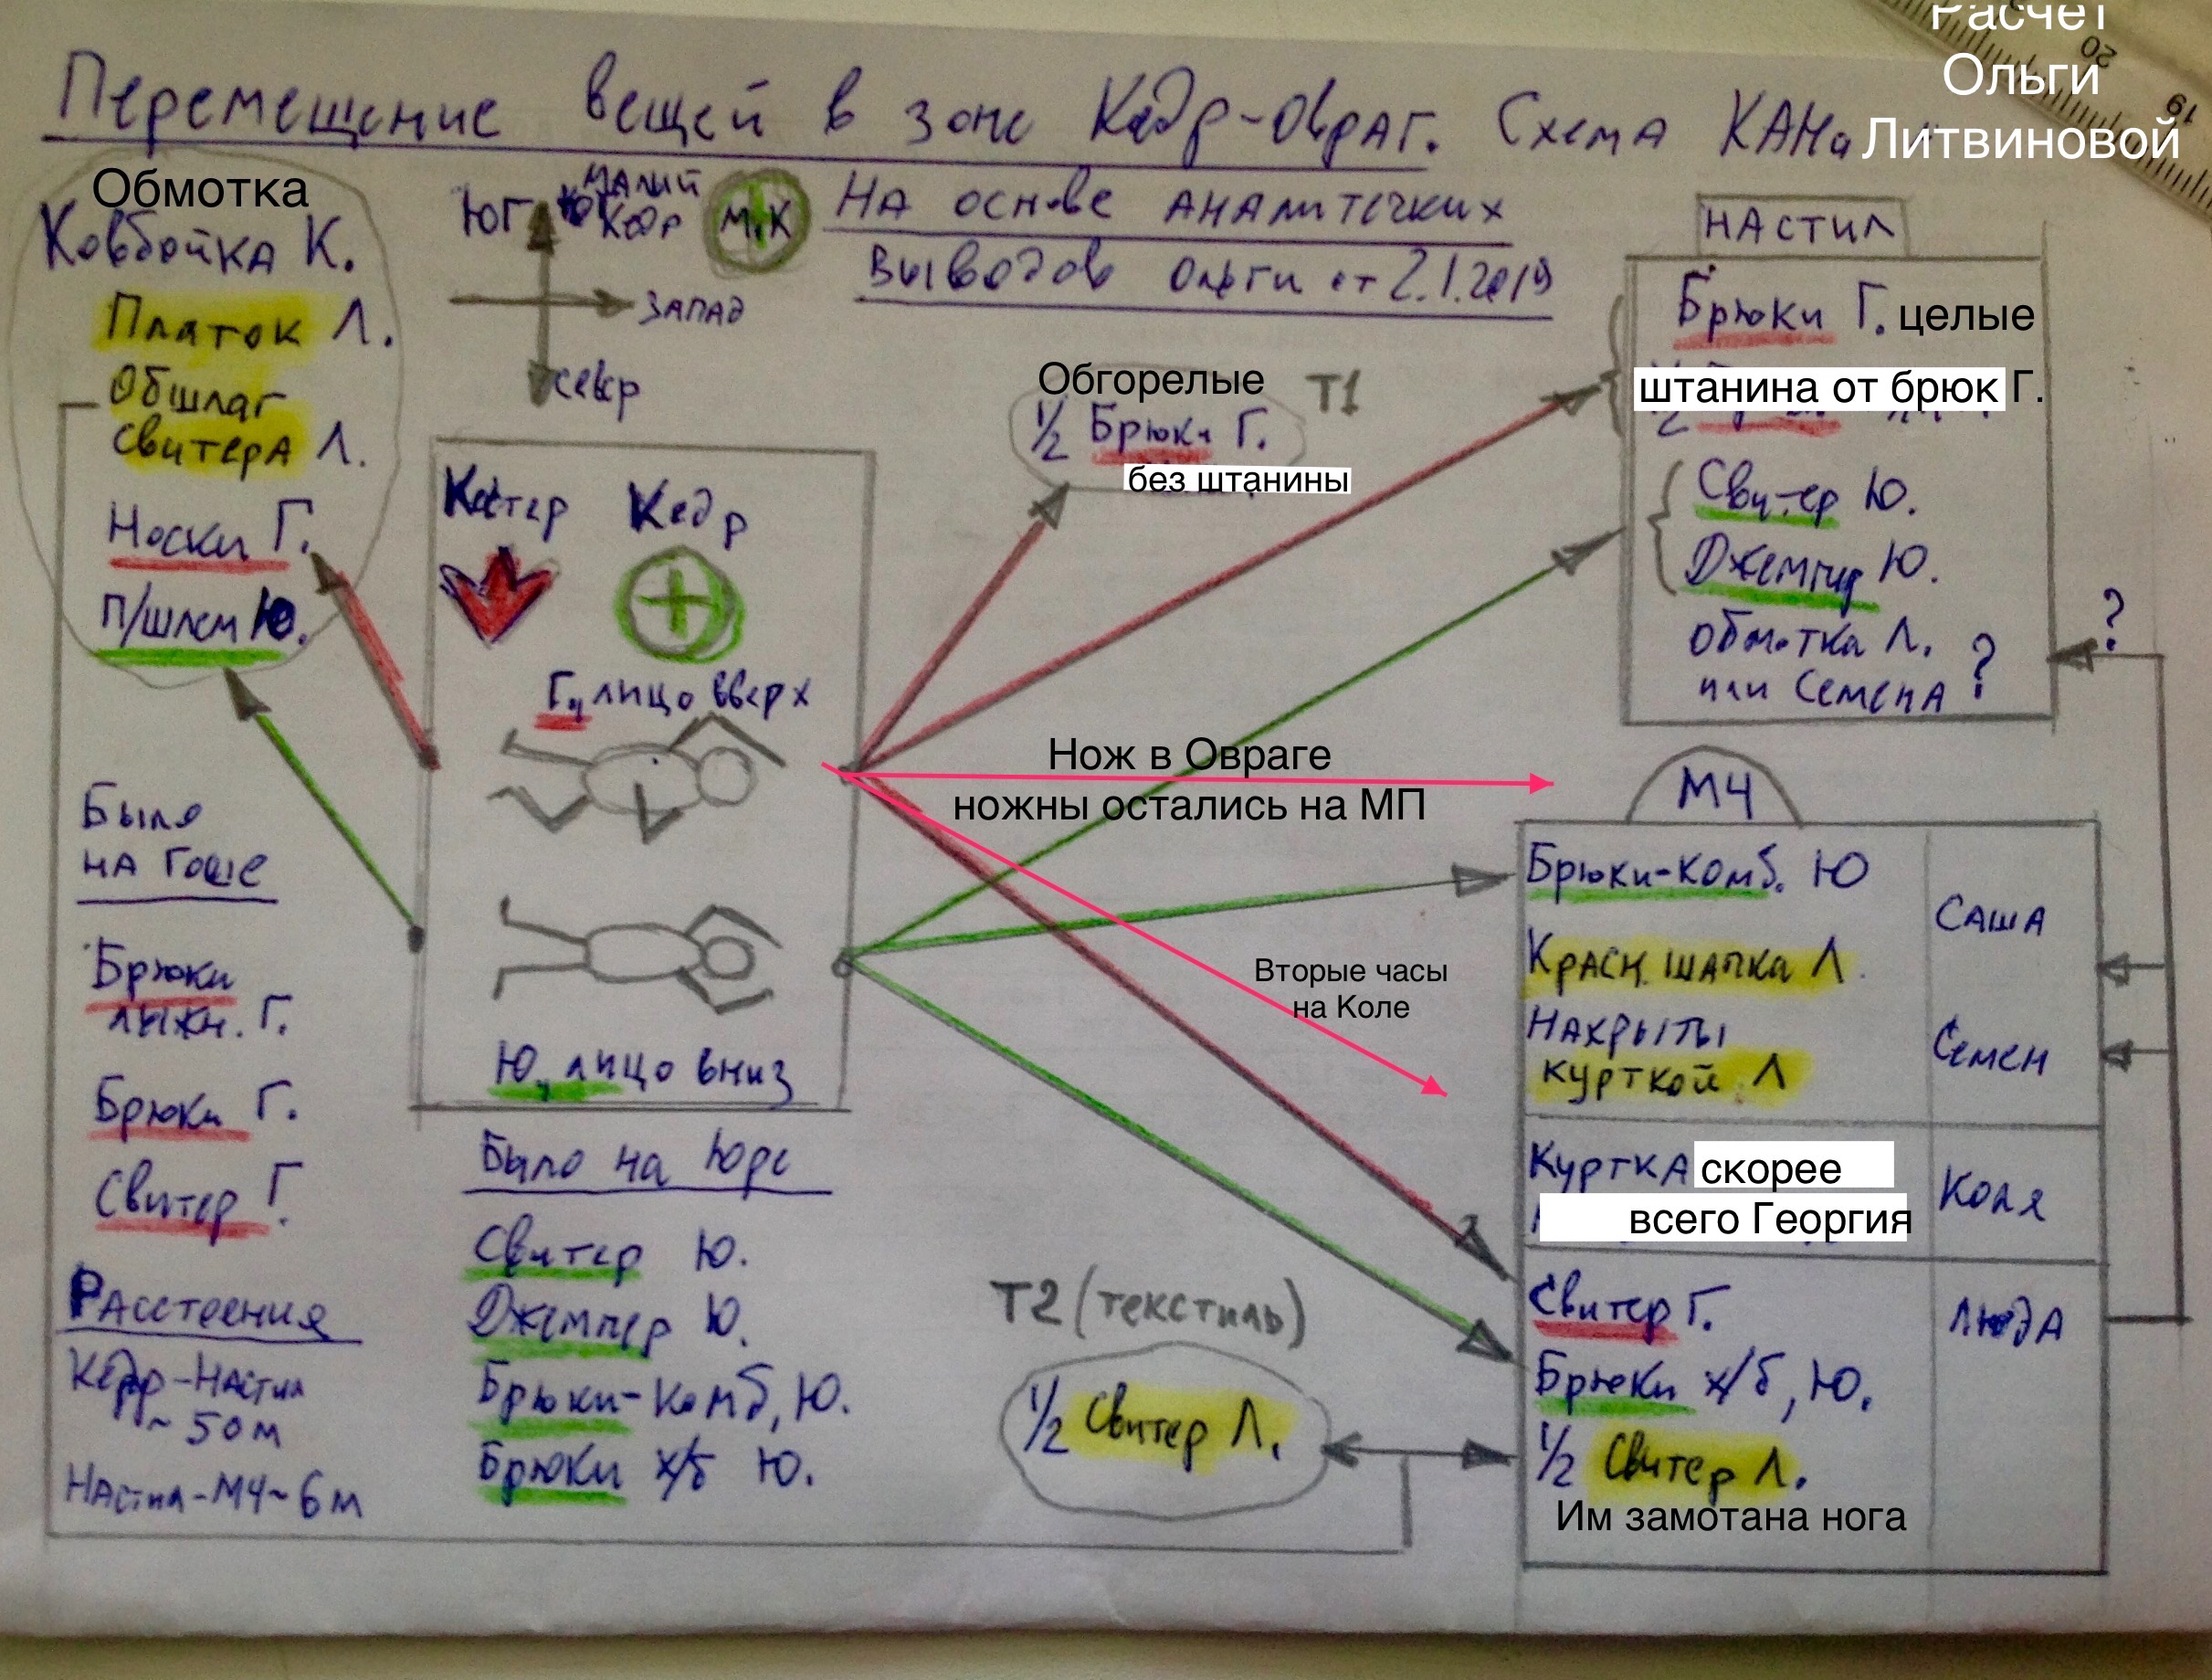 Расчет
Ольги
Литвиновой
20
19
Перемещение вещей в зоне Кедр-Овраг. Схема КАНа
На основе аналитечких
выводов Ольги от 2.1.2019
Обмотка
Ковбойка К.
Платок Л.
Обшлаг
свитера Л.
Носки Г.
п/шлем Ю.
ЮГ
малый
Кедр
М.К
ЗАПАД
север
Костер Кедр
Г, лицо вверх
Ю, лицо вниз
Было
на Гоше
Брюки
лыжн. Г.
Брюки Г.
Свитер Г.
Расстоения
Кедр-Настил
~ 50м
Настил-М4~6м
Было на Юре
Свитер Ю.
Джемпер Ю.
Брюки-комб, Ю.
Брюки х/б Ю.
Обгорелые
Т1
1/2 Брюки Г.
без штанины
Нож в Овраге
ножны остались на МП
Вторые часы
на Коле
Т2 (текстиль)
1/2 Свитер Л.
НАСТИЛ
Брюки Г. целые
штанина от брюк Г.
Свитер Ю.
Джемпер Ю.
обмотка Л.
или Семена ?
?
М4
Брюки-комб. Ю
Саша
Красн. шапка Л.
Накрыты
курткой Л
Семен
Куртка скорее
всего Георгия
Коля
Свитер Г.
Люда
Брюки х/б, Ю.
1/2 Свитер Л.
Им замотана нога